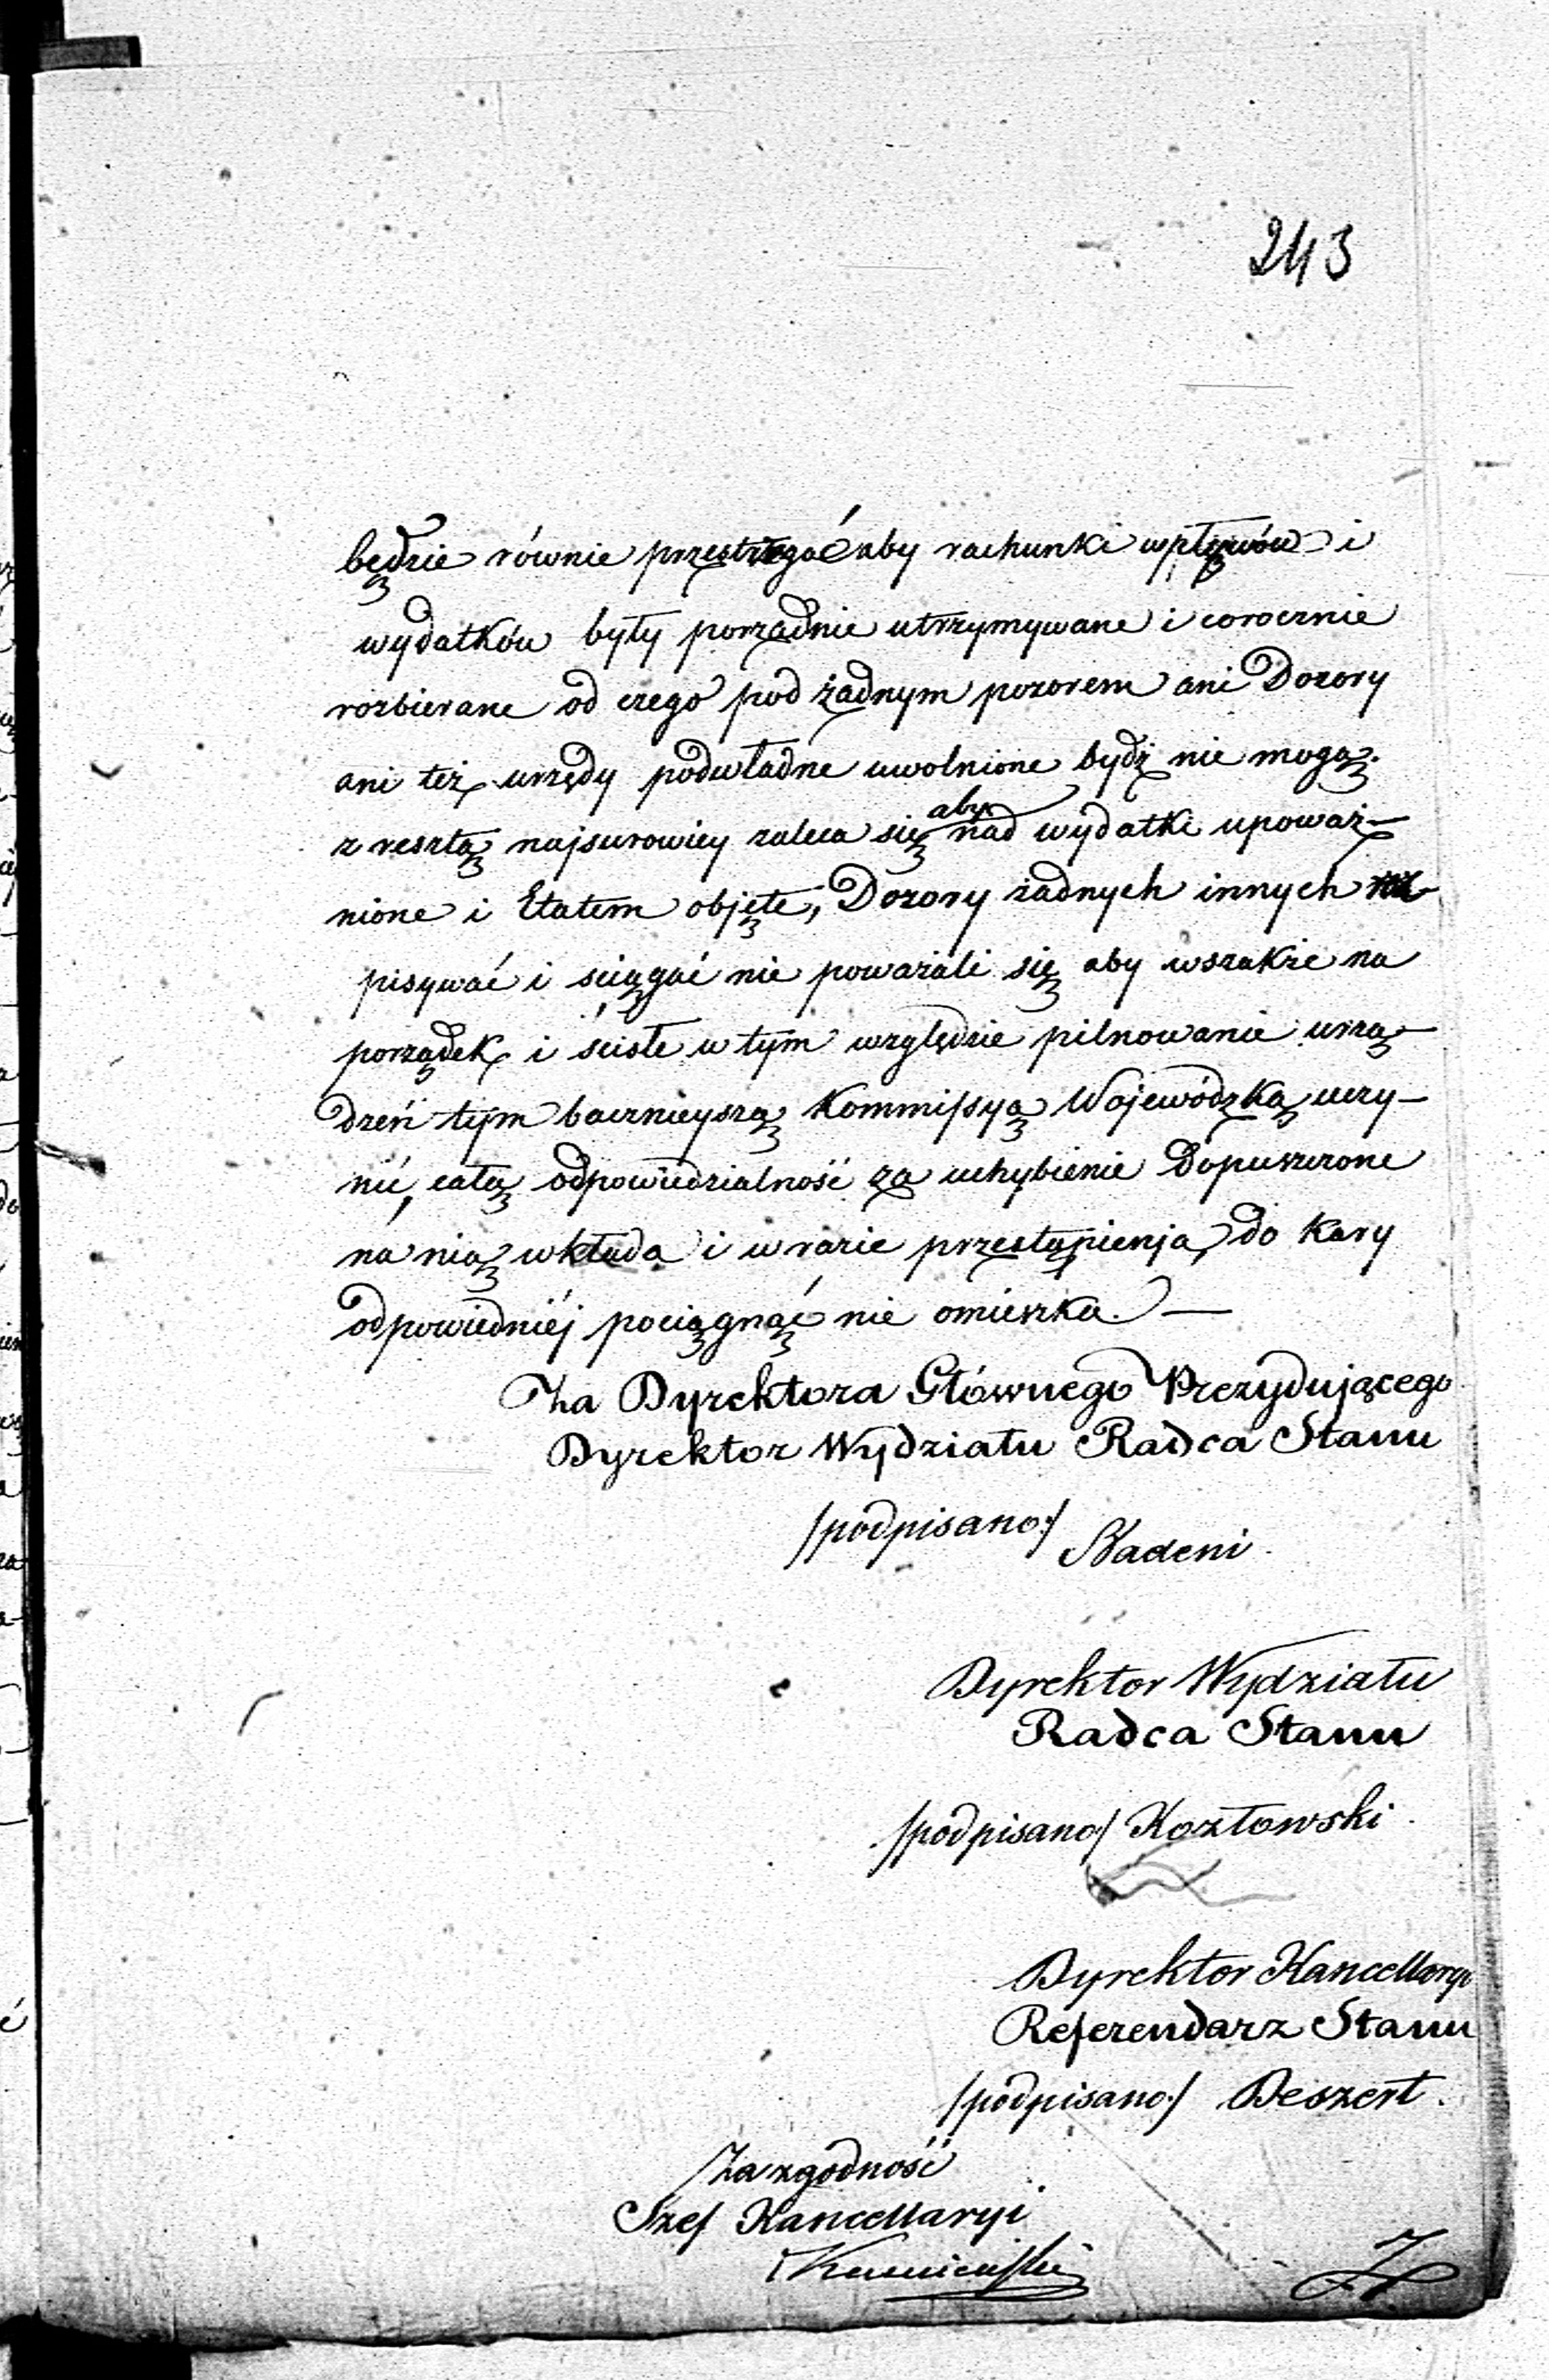 243
będzie równie przestrzegać aby rachunki wpływów i
wydatków były porządnie utrzymywane i corocznie
rozbierane od czego pod żadnym pozorem ani Dozory
ani też urzędy podwładne uwolnione bydź nie mogą.
z resztą najsurowiey zaleca się aby nad wydatki upoważ-
nione i Etatem objęte, Dozory żadnych innych
pisywać i ściągać nie poważali się aby wszakże na
porządek i ścisłe w tym względzie pilnowanie urzą-
dzeń tym bacznieyszą Kommissyą Wojewódzką uczy-
nić, całą odpowiedzialność za uchybienie Dopuszczone
na nią wkłada i w razie przestąpienia do kary
odpowiedniéj pociągnąć nie omieszka. —
Za Dyrektora Głównego Prezydującego
Dyrektor Wydziału Radca Stanu
/podpisano:/ Badeni.
Dyrektor Wydziału
Radca Stanu
/podpisano/ Kozłowski.
Dyrektor Kancellaryi
Referendarz Stanu
/podpisano:/ Deszert.
Za zgodność
Szef Kancellaryi